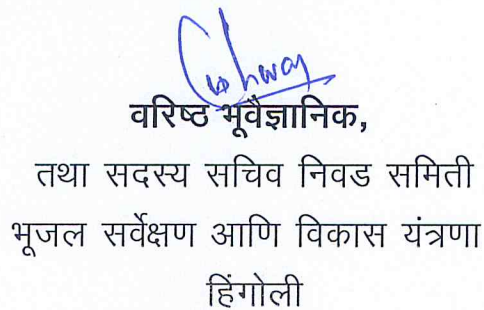 वरिष्ठ भूवैज्ञानिक,
तथा सदस्य सचिव निवड समिती
भूजल सर्वेक्षण आणि विकास यंत्रणा
हिंगोली